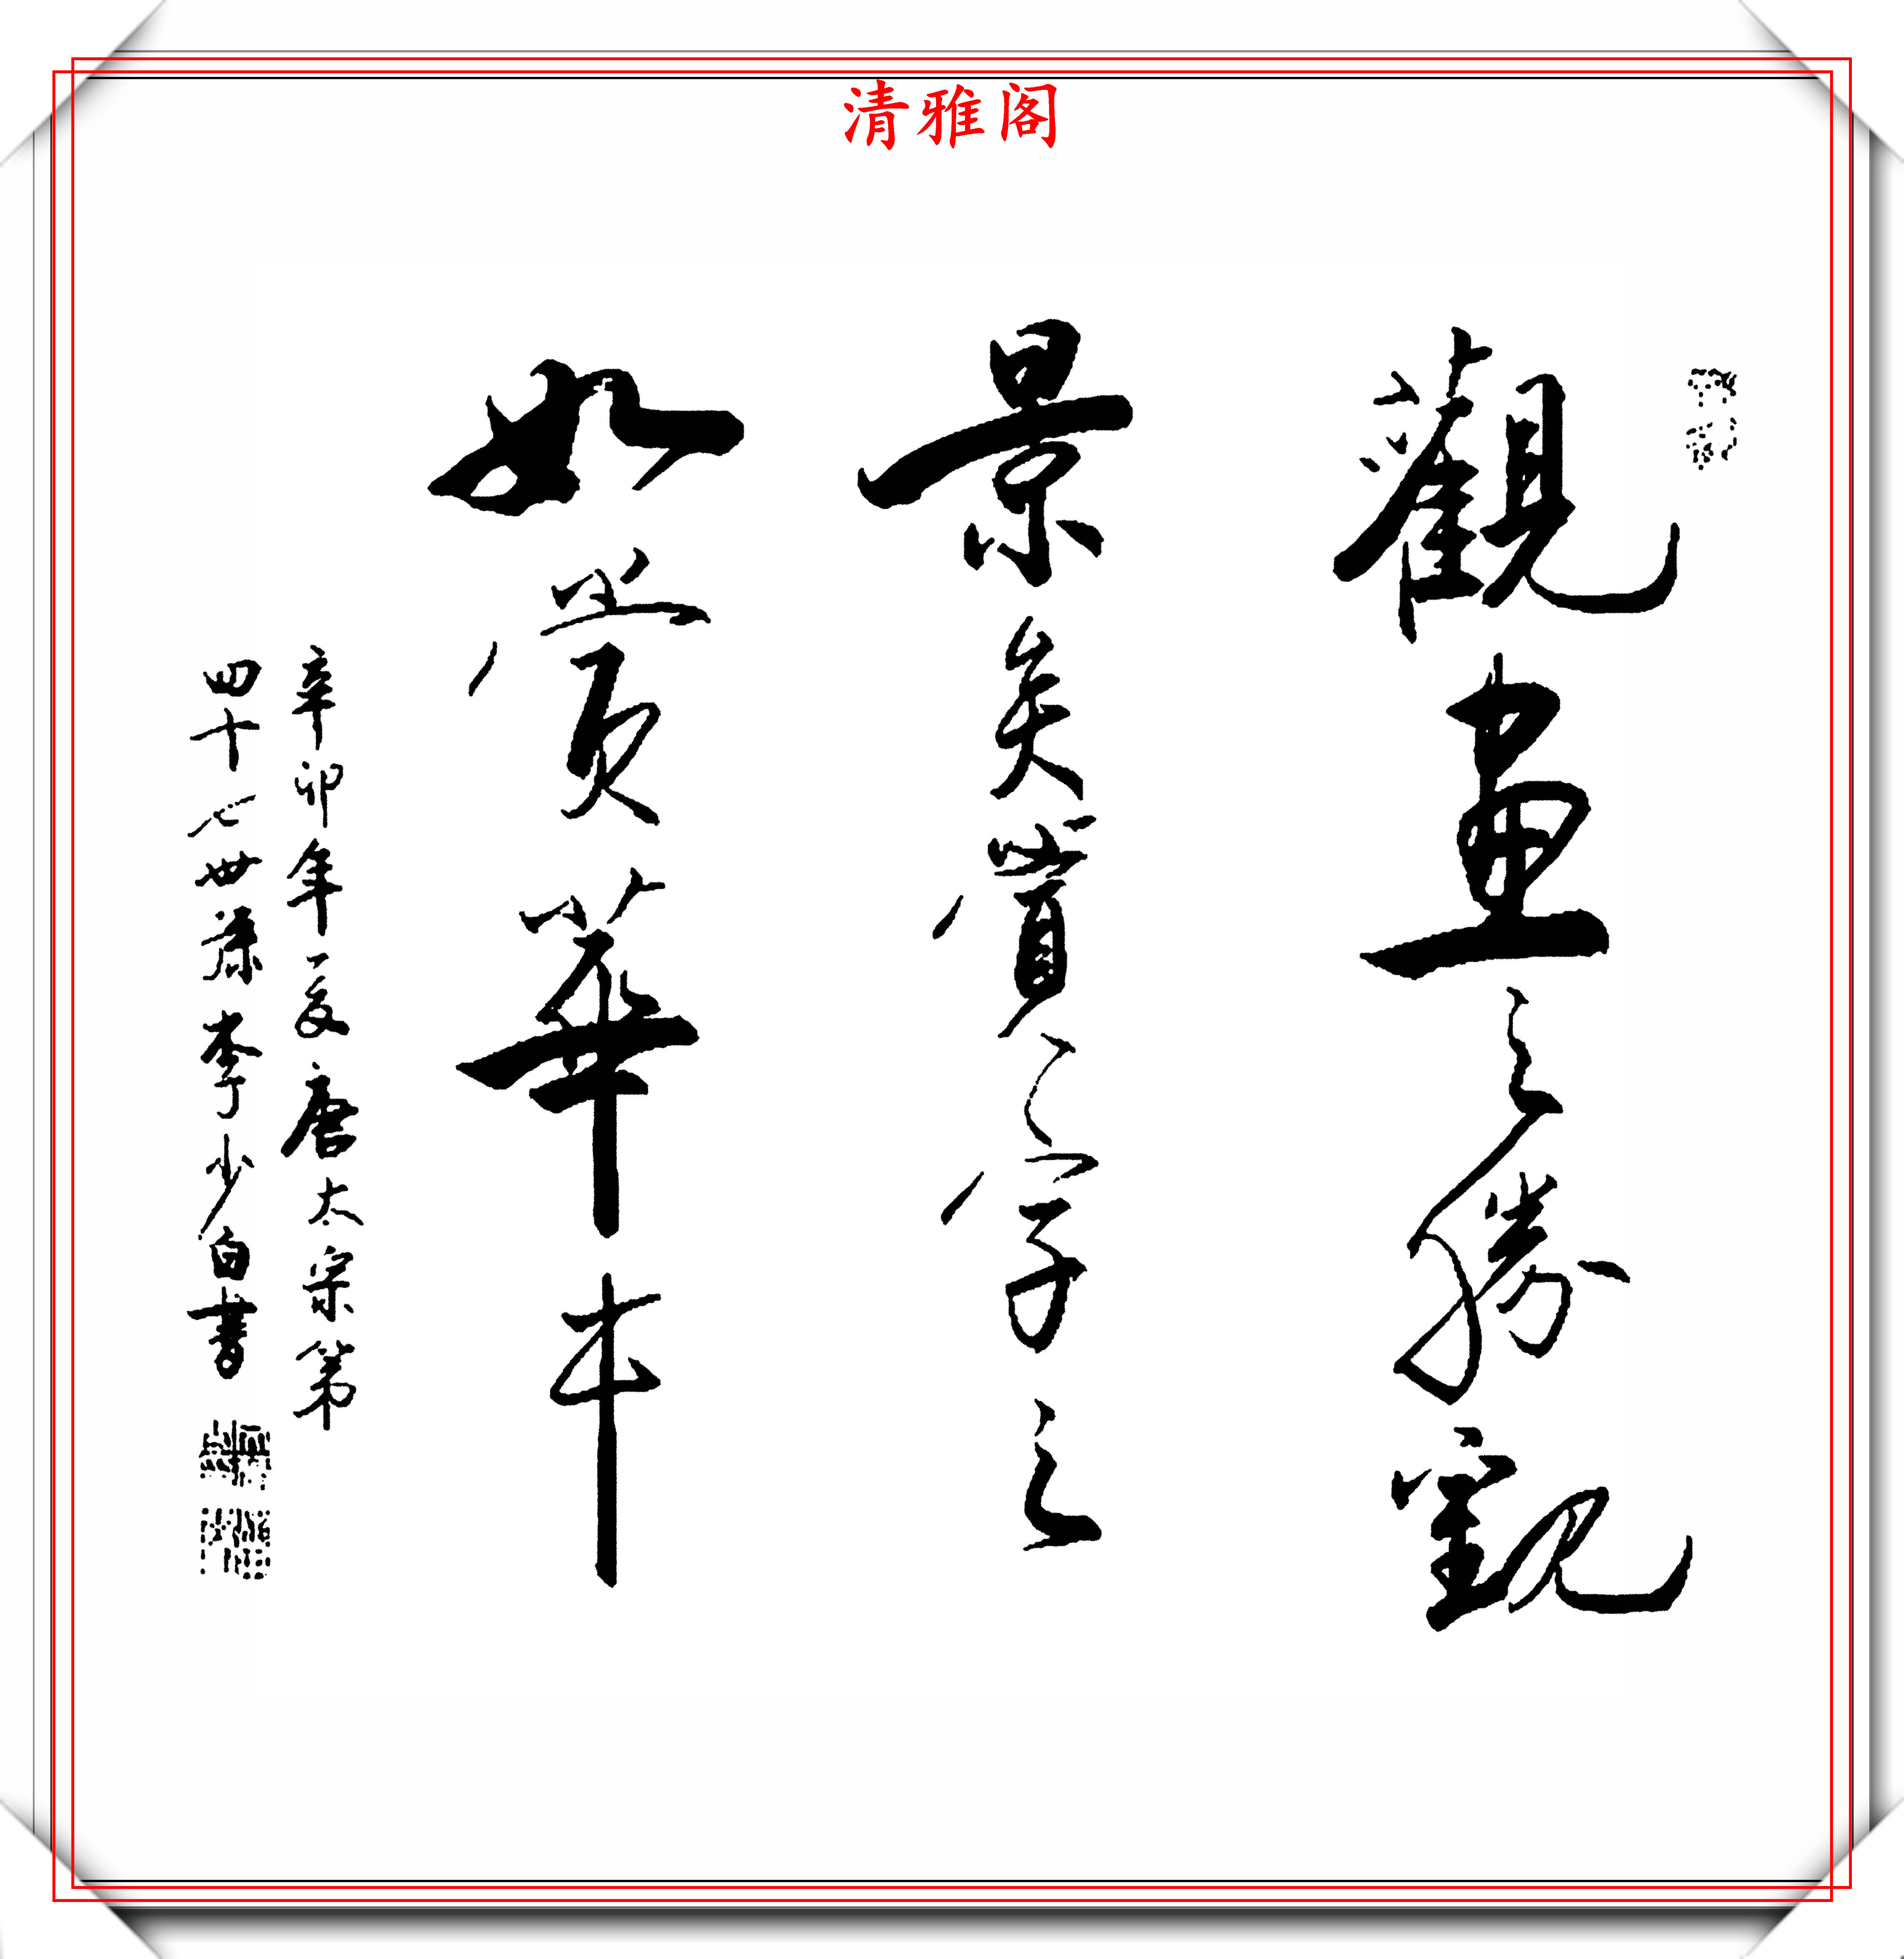 清雅阁
觀畫之勝觀
景矣賞字之
如賞華本
辛卯年夏唐太宗第
四十七世孫李少白書